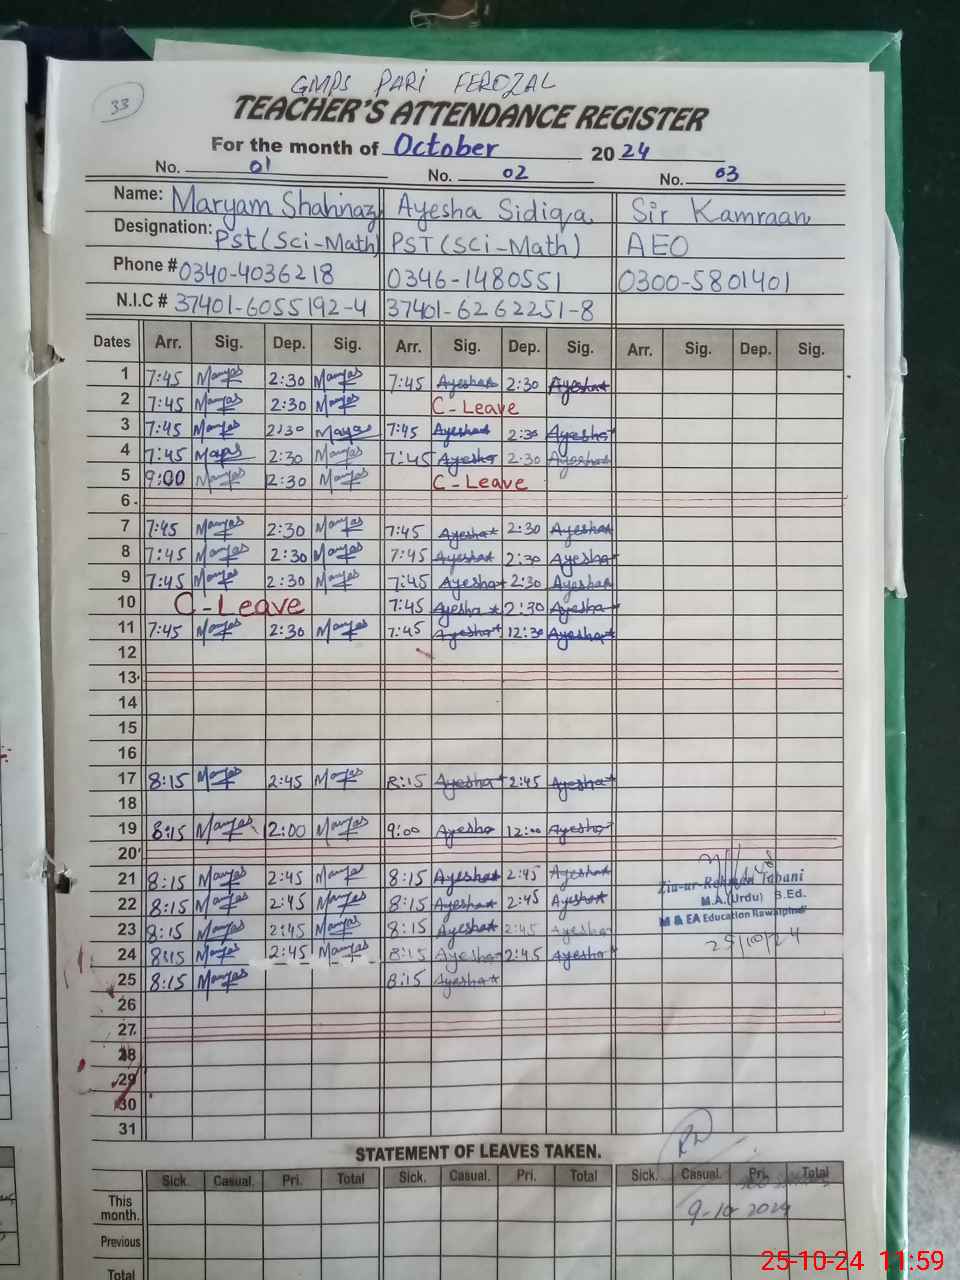 33
GMPS PARI FEROZAL
TEACHER'S ATTENDANCE REGISTER
For the month of October 2024
No. 01 No. 02 No. 03
Name: Maryam Shahnaz Ayesha Sidiqa Sir Kamraan
Designation: Pst(Sci-Math) PST(Sci-Math) AEO
Phone # 0340-4036218 0346-1480551 0300-5801401
N.I.C # 37401-6055192-4 37401-6262251-8
Dates Arr. Sig. Dep. Sig. Arr. Sig. Dep. Sig. Arr. Sig. Dep. Sig.
1 7:45 2:30 7:45 Ayesha 2:30 Ayesha
2 7:45 2:30 C-Leave
3 7:45 2:30 7:45 Ayesha 2:30 Ayesha
4 7:45 2:30 7:45 Ayesha 2:30 Ayesha
5 9:00 2:30 C-Leave
6
7 7:45 2:30 7:45 Ayesha 2:30 Ayesha
8 7:45 2:30 7:45 Ayesha 2:30 Ayesha
9 7:45 2:30 7:45 Ayesha 2:30 Ayesha
10 C-Leave 7:45 Ayesha 2:30 Ayesha
11 7:45 2:30 7:45 Ayesha 12:30 Ayesha
12
13
14
15
16
17 8:15 2:45 8:15 Ayesha 2:45 Ayesha
18
19 8:15 12:00 9:00 Ayesha 12:00 Ayesha
20
21 8:15 2:45 8:15 Ayesha 2:45 Ayesha
22 8:15 2:45 8:15 Ayesha 2:45 Ayesha
23 8:15 2:45 8:15 Ayesha 2:45 Ayesha
24 8:15 2:45 8:15 Ayesha 2:45 Ayesha
25 8:15 8:15 Ayesha
26
27
28
29
30
31
Zia-ur-Rehman Tabani
M.A.(Urdu) B.Ed.
M & EA Education Rawalpindi
25/10/24
STATEMENT OF LEAVES TAKEN.
Sick. Casual. Pri. Total Sick. Casual. Pri. Total Sick. Casual. Pri. Total
This month. 9-10-2024
Previous
Total
25-10-24 11:59